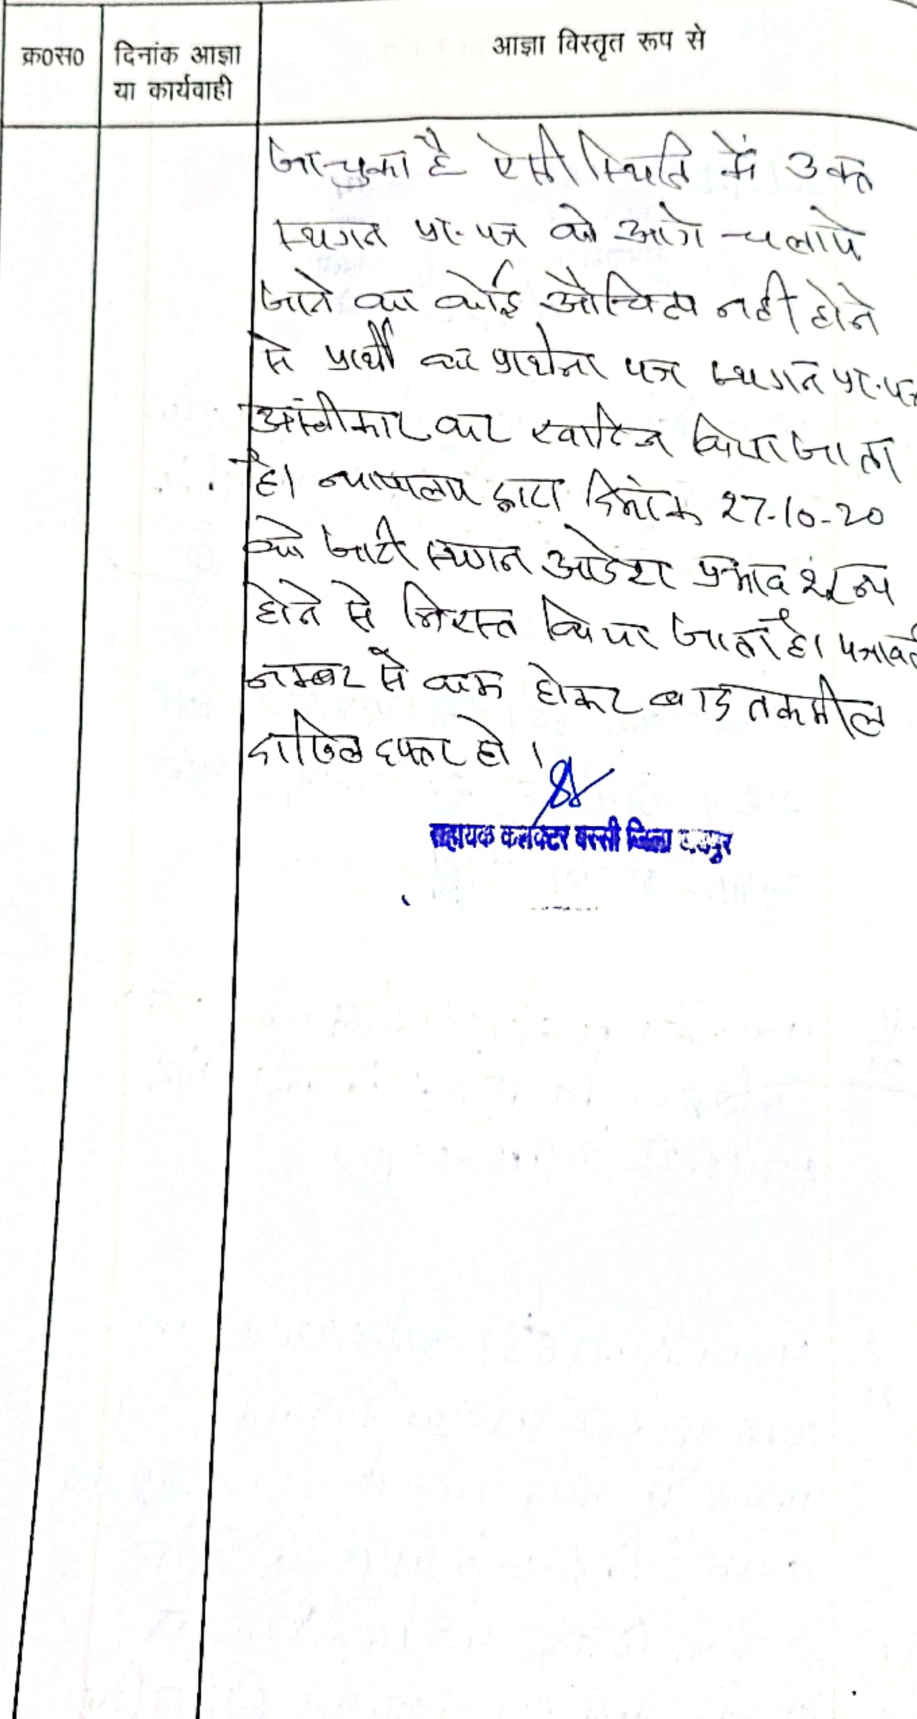 क्र०स०
दिनांक आज्ञा
या कार्यवाही
आज्ञा विस्तृत रूप से
जा चुका है ऐसी स्थिति में उक्त
स्थगन प्रा.पत्र को आगे चलाये
जाने का कोई औचित्य नही होने
से प्रार्थी का प्रार्थना पत्र स्थगन प्रा.पत्र
अस्वीकार कर खारिज किया जाता
है। न्यायालय द्वारा दिनांक 27-10-20
को जारी स्थगन आदेश प्रभाव शून्य
होने से निरस्त किया जाता है। पत्रावली
नम्बर से कम होकर बाद तकमील
दाखिल दफ्तर हो।
सहायक कलक्टर बस्सी जिला जयपुर